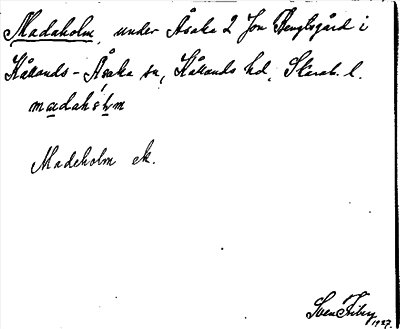 Madaholm, under Åsaka 2 Jon Bengtsgård i
Kållands-Åsaka sn, Kållands hd, Skarab. l.
madahɷlm
Madeholm ek.
Sven Fiby
1927.